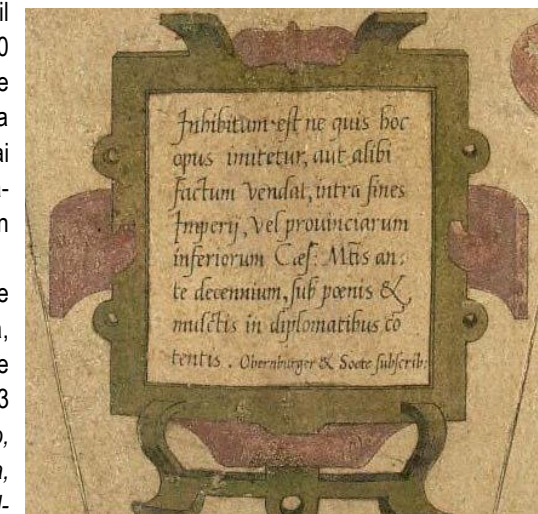 Inhibitum est ne quis hoc
opus imitetur, aut alibi
factum vendat, intra fines
Imperij, vel prouinciarum
inferiorum Cæs: Mtis an:
te decennium, sub pœnis &
mulctis in diplomatibus cō
tentis. Obernburger & Soete subscrib: